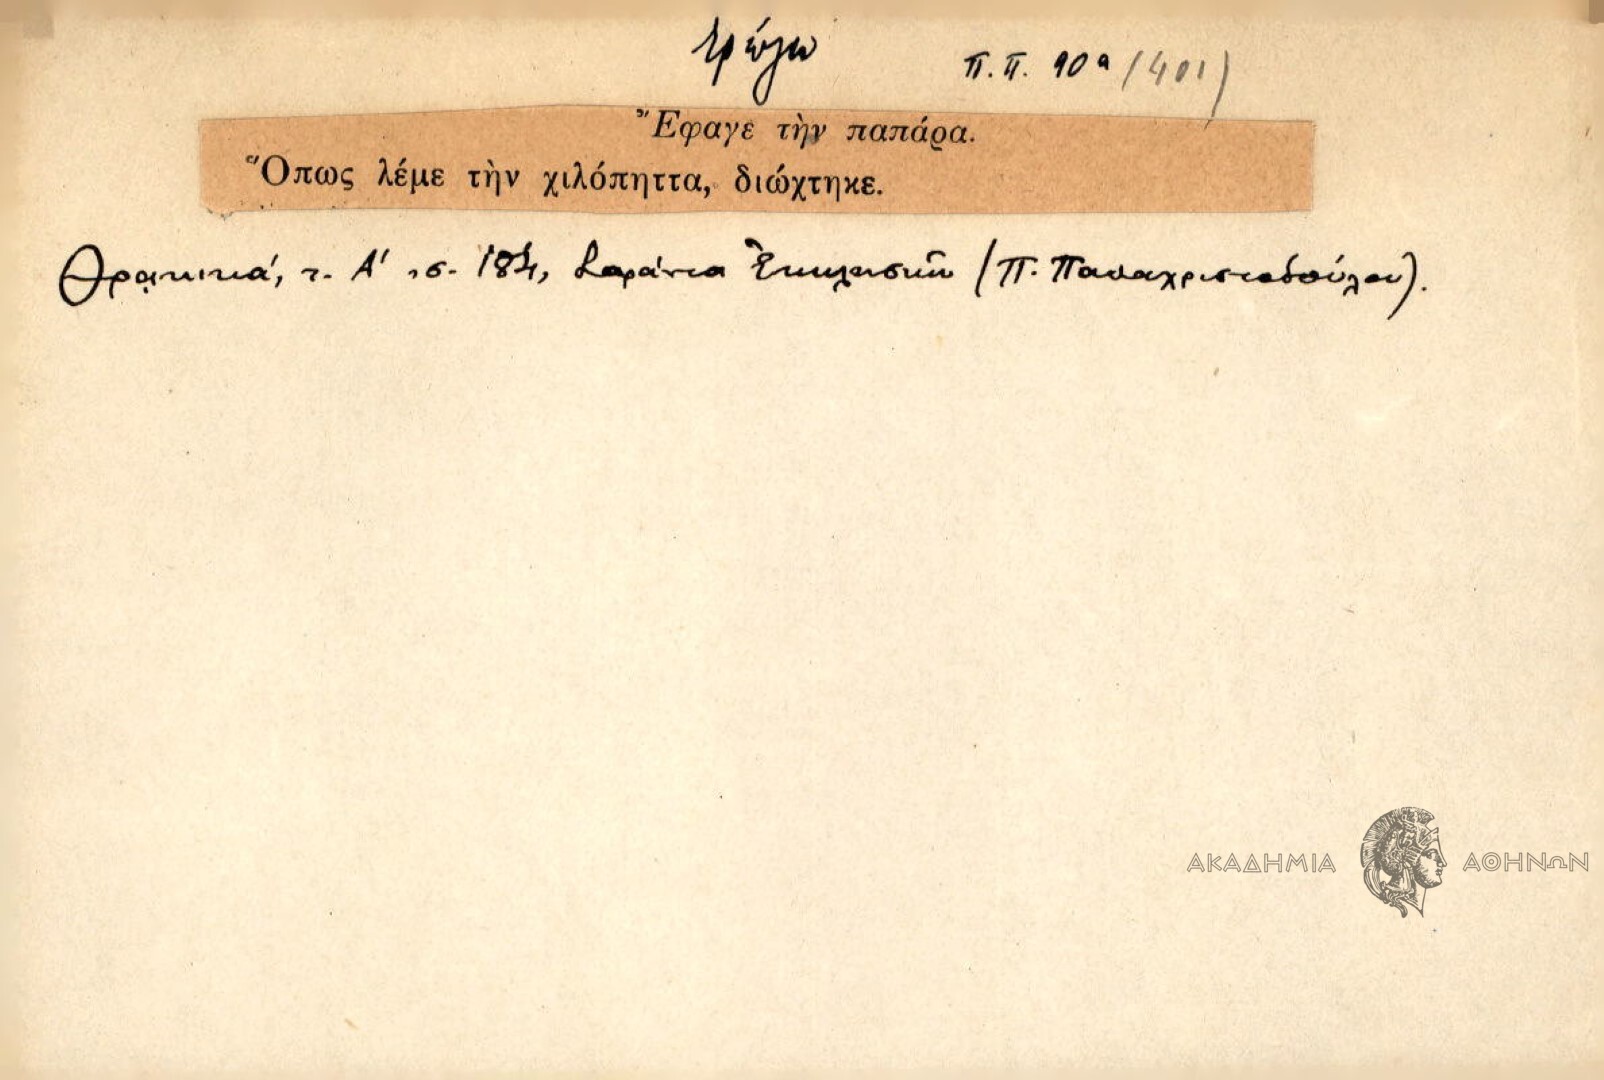 τρώγω
Π.Π. 90α (401)
Ἔφαγε τὴν παπάρα.
Ὅπως λέμε τὴν χιλόπηττα, διώχτηκε.
Θρᾳκικά, τ. Α' σ. 184, Σαράντα Ἐκκλησιῶν (Π. Παπαχριστοδούλου).
ΑΚΑΔΗΜΙΑ ΑΘΗΝΩΝ